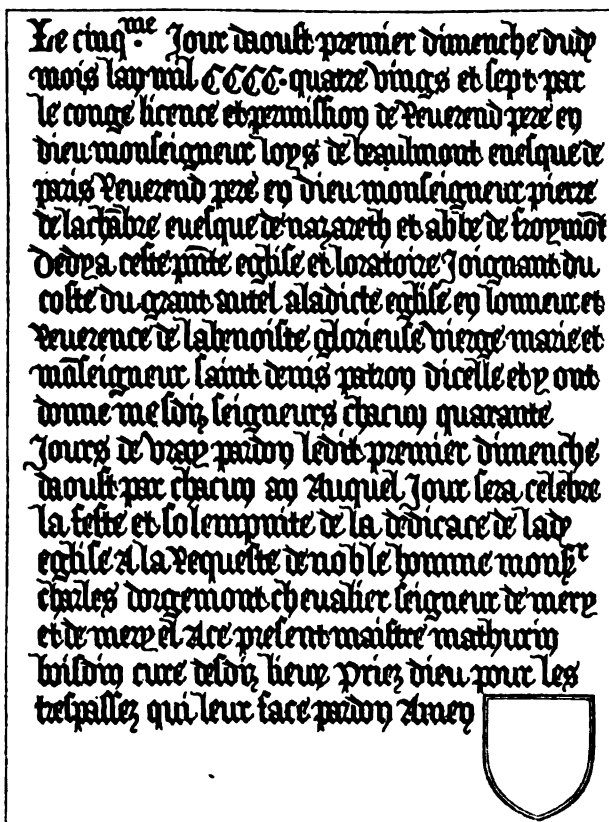 Le cinq.me Jour daoust premier dimenche dudt
mois lan mil CCCC. quatre vings et sept par
le conge licence et permission de Reuerend pere en
dieu monseigneur loys de beaulmont euesque de
paris Reuerend pere en dieu monseigneur pierre
de lachābre euesque de nazareth et abbe de froymōt
Dedya ceste pn̄te eglise et loratoire Joignant du
coste du grant autel aladicte eglise en lonneur et
Reuerence de labenoiste glorieuse vierge marie et
mōseigneur saint denis patron dicelle et y ont
donne mesdiz seigneurs chacun quarante
Jours de vray pardon ledit premier dimenche
daoust par chacun an Auquel Jour sera celebre
la feste et solempnite de la dedicace de ladt
eglise A la Requeste de noble homme monsr
charles dorgemont cheualier seigneur de mery
et de mery Ace present maistre mathurin
boisdin cure desdiz lieux Priez dieu pour les
trespassez qui leur face pardon Amen